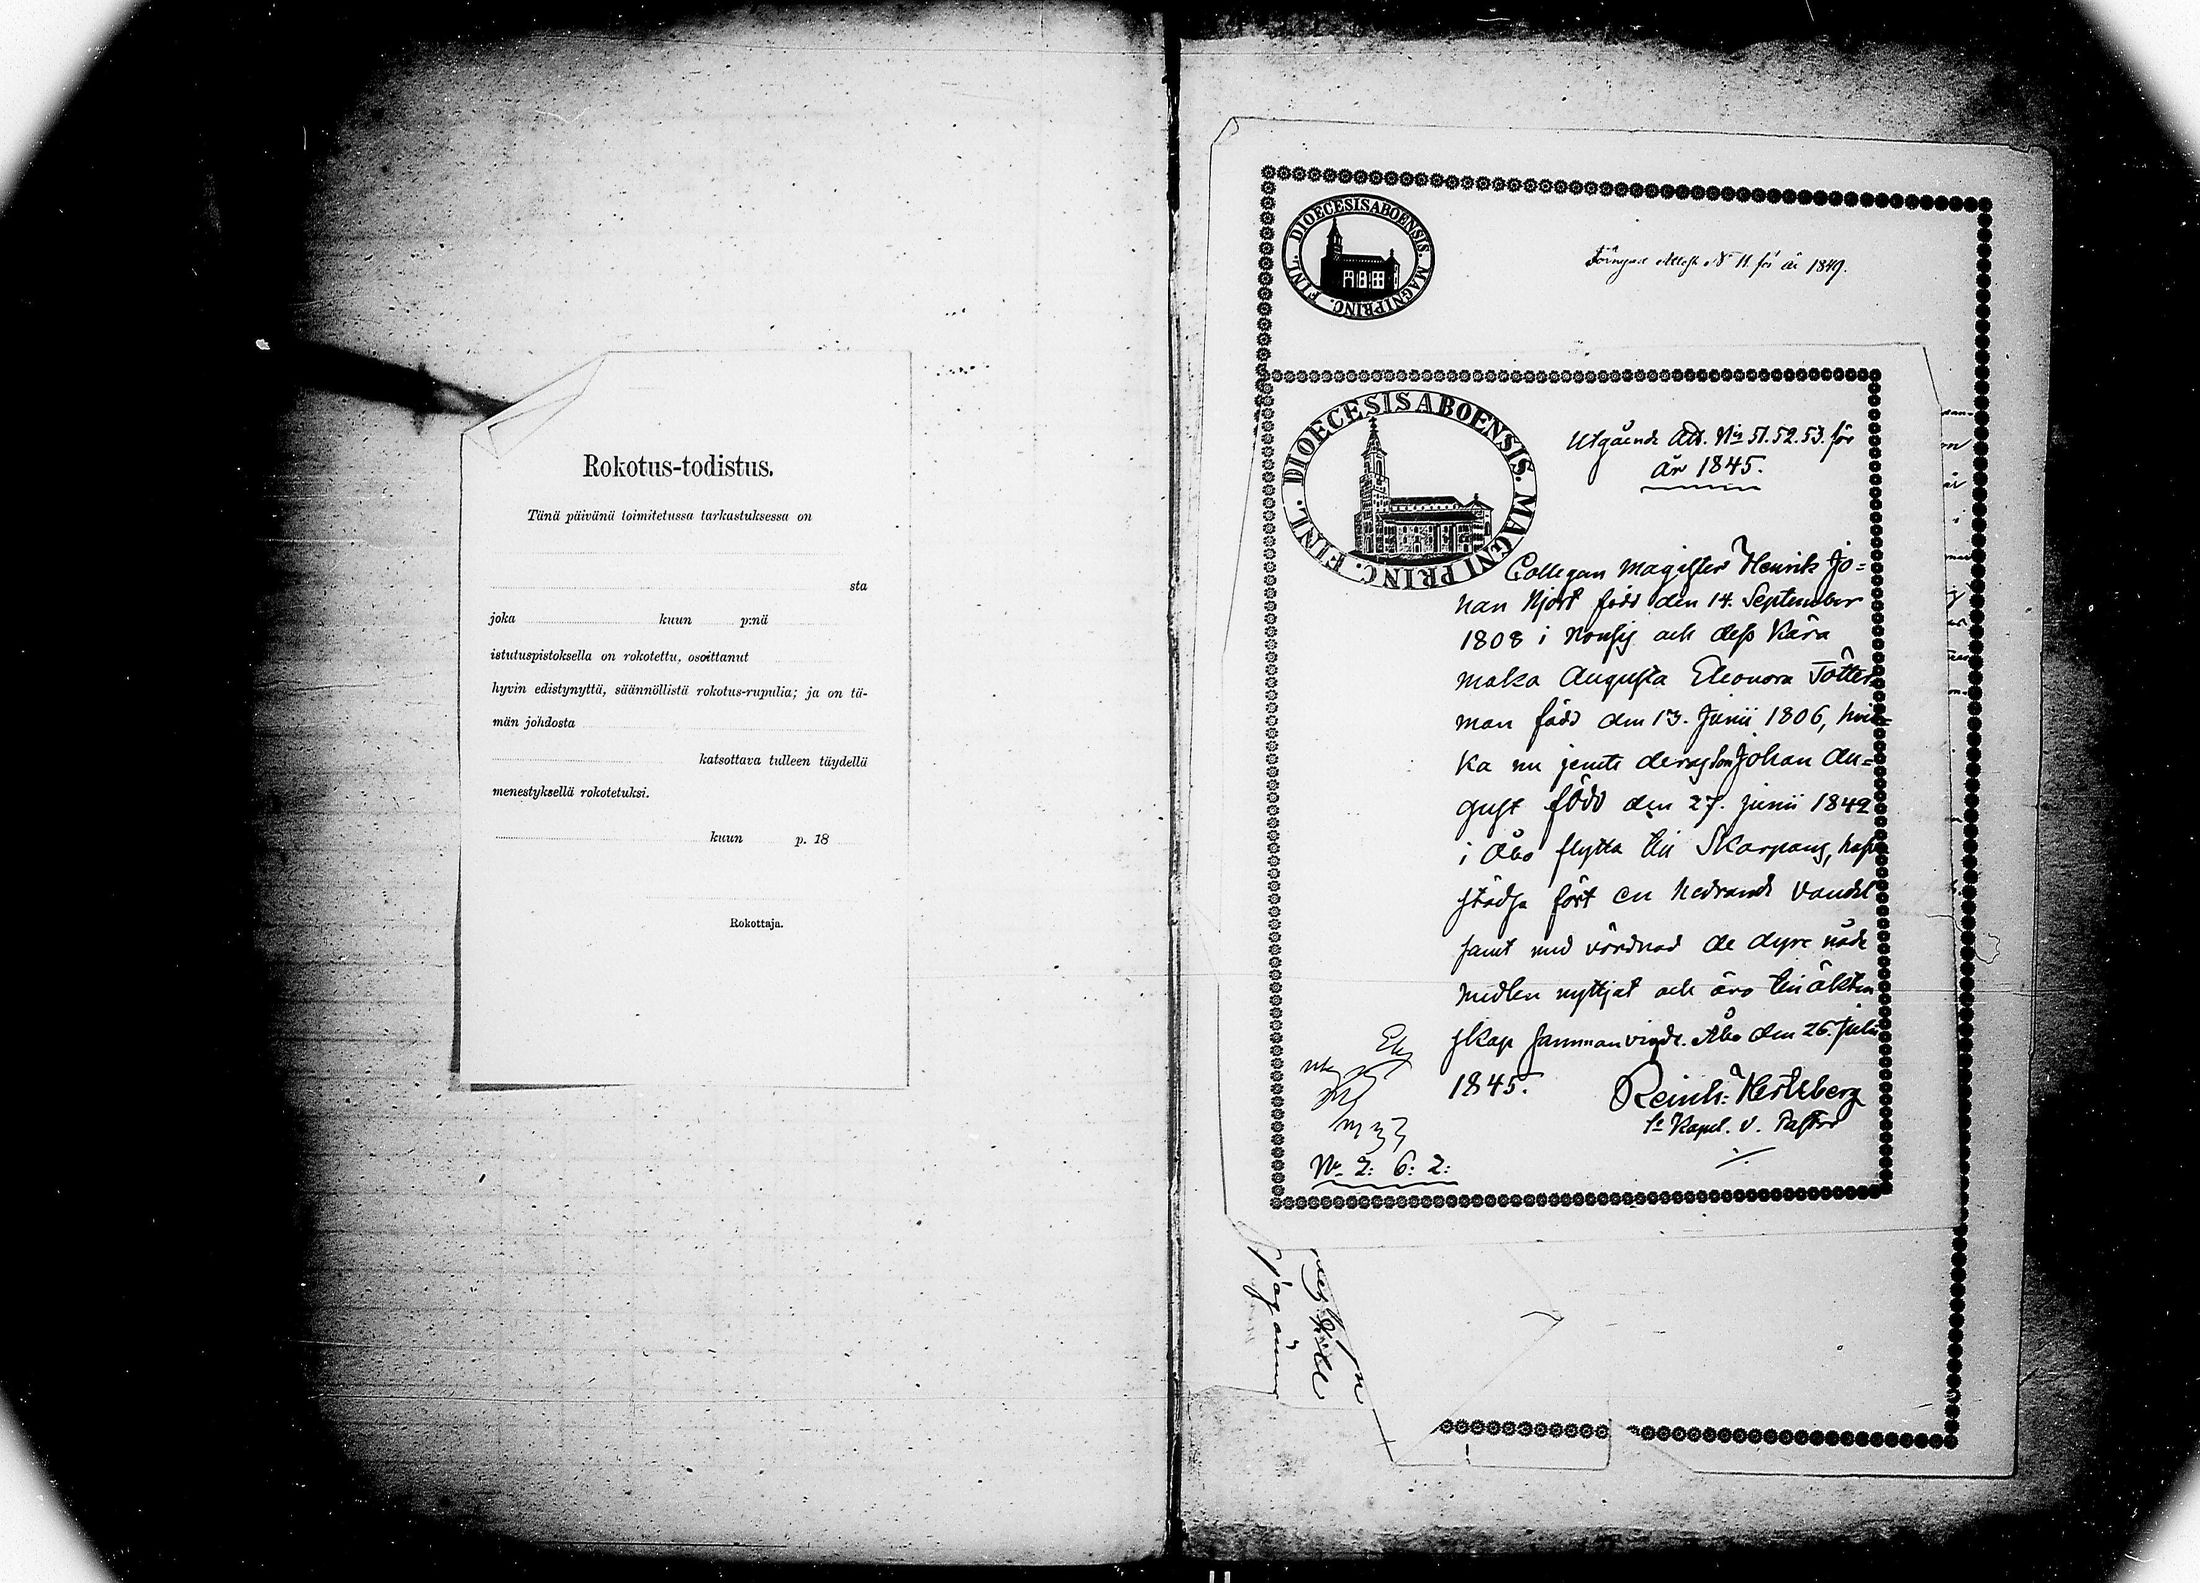 Rokotus-todistus.
Tänä päivänä toimitetussa tarkastuksessa on
sta
joka kuun p:nä
istutuspistoksella on rokotettu, osoittanut
hyvin edistynyttä, säännöllistä rokotus-rupulia; ja on tä-
män johdosta
katsottava tulleen täydellä
menestyksellä rokotetuksi.
kuun p. 18
Rokottaja.
DIOECESIS ABOENSIS. MAGNI PRINC. FINL.
N° 11 för år 1849.
DIOECESIS ABOENSIS. MAGNI PRINC. FINL.
Utgående Att. N:is 51. 52. 53. för
år 1845.
Collegan Magister Henrik Jo=
han Hjort född den 14. September
1808 i Nousis och dess Kära
maka Augusta Eleonora Tötter
man född den 13. Junii 1806, hvil=
ka nu jemte deras son Johan Au=
gust född den 27. junii 1842
i Åbo flytta till Skarpans, hafva
städse fört en hedrande vandel
samt med vördnad de dyre nåde
medlen nyttjat och äro till äkten
skap sammanvigde. Åbo den 26. Julii
1845.
Reinh: Hertzberg
1:e Kapel. v. Pastor
N:o 2: 6: 2: